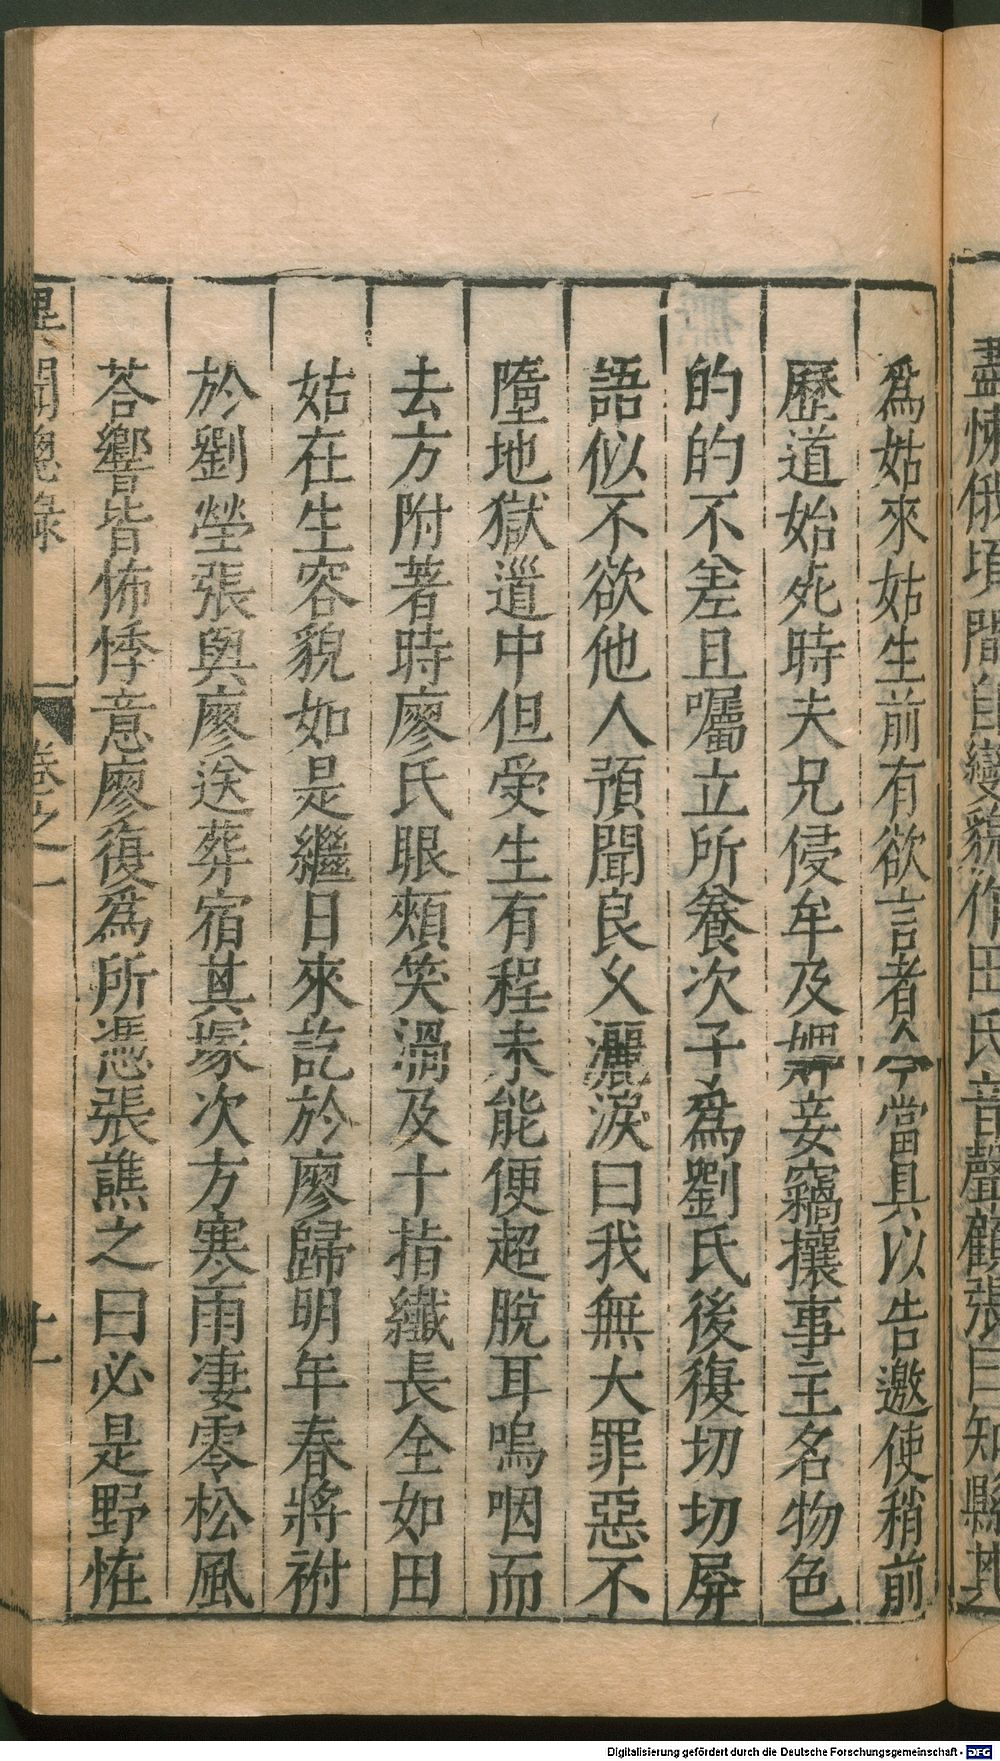 盡悚俄頃間自變貌作田氏音聲顧張曰知縣其
爲姑來姑生前有欲言者今當具以告邀使稍前
歷道始死時夫兄侵牟及婢妾竊攘事主名物色
的的不差且囑立所養次子爲劉氏後復切切屏
語似不欲他人預聞良乆灑淚曰我無大罪惡不
墮地獄道中但受生有程未能便超脫耳嗚咽而
去方附著時廖氏眼頰笑渦及十指纖長全如田
姑在生容貌如是繼日來訖於廖歸明年春將祔
於劉塋張與廖送葬宿其塚次方寒雨凄零松風
荅響皆怖悸意廖復爲所憑張譙之曰必是野恠
異聞總錄 卷之一 十一
Digitalisierung gefördert durch die Deutsche Forschungsgemeinschaft - DFG